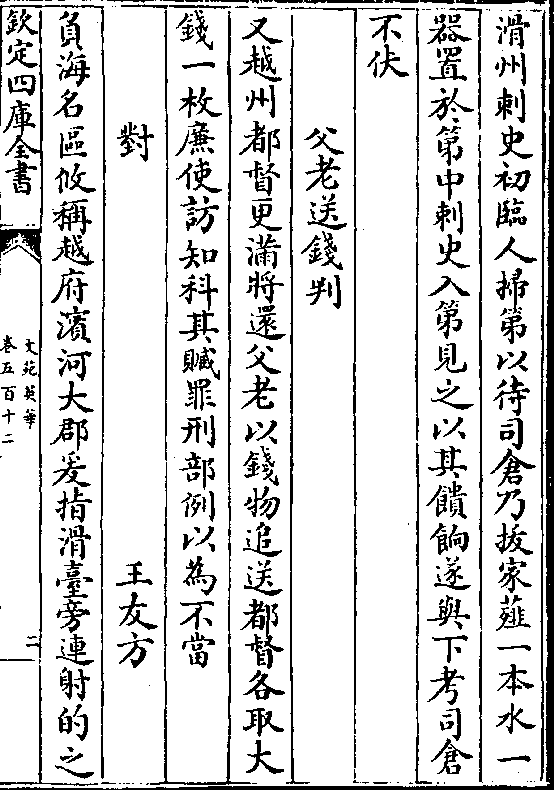 滑州刺史初臨人掃第以待司倉乃拔家薤一本水一
器置於第中刺史入第見之以其饋餉遂與下考司倉
不伏
父老送錢判
又越州都督更滿將還父老以錢物追送都督各取大
錢一枚廉使訪知科其贓罪刑部例以為不當
對 王友方
負海名區攸稱越府濱河大郡爰指滑臺旁連射的之
欽定四庫全書
文苑英華
卷五百十二
二